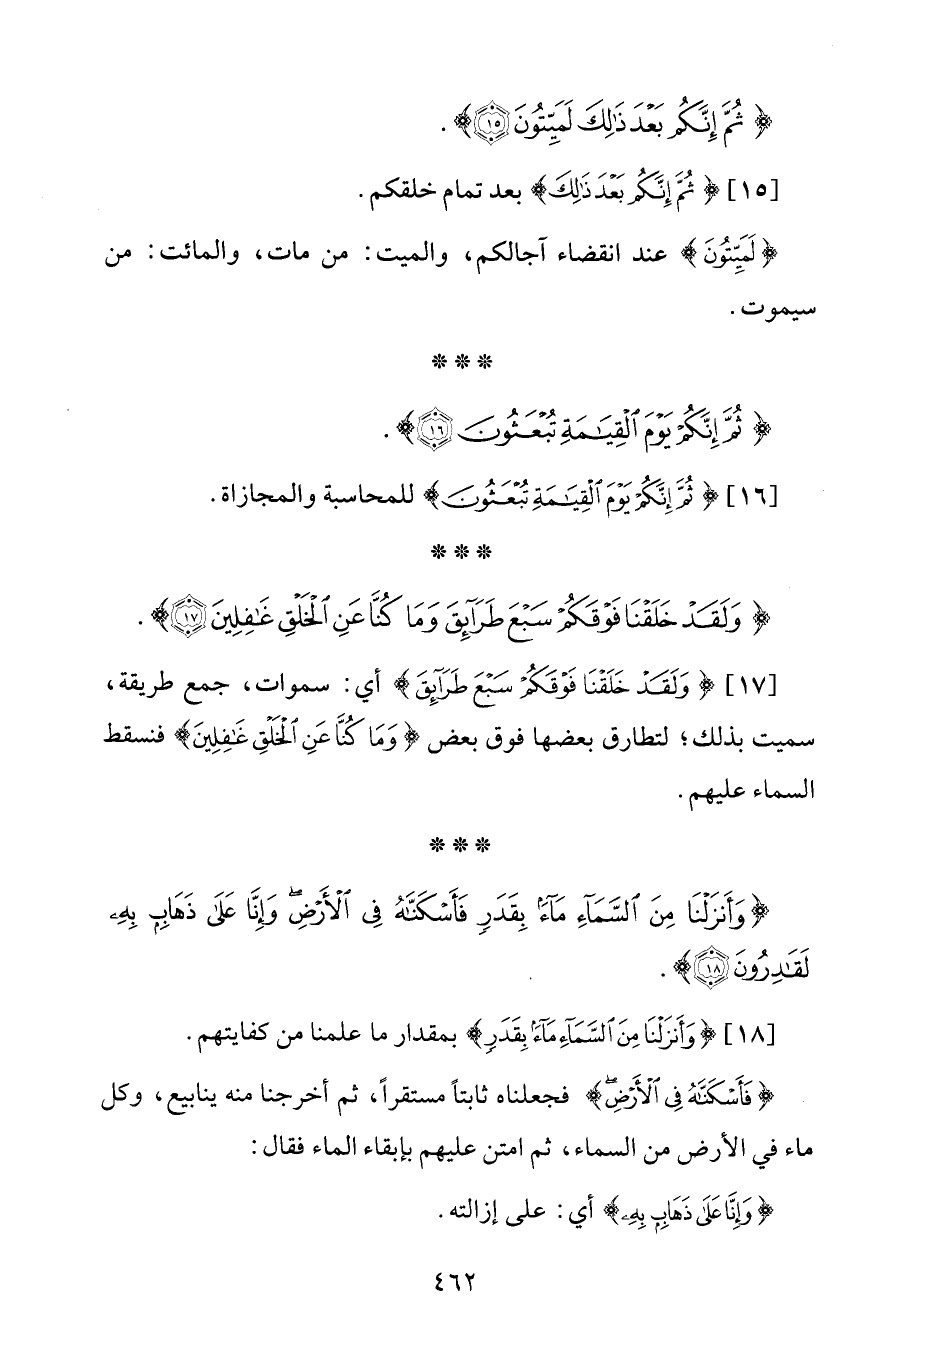 ﴿ ثُمَّ إِنَّكُم بَعْدَ ذَٰلِكَ لَمَيِّتُونَ ١٥﴾ .
[١٥] ﴿ ثُمَّ إِنَّكُم بَعْدَ ذَٰلِكَ﴾ بعد تمام خلقكم .
﴿لَمَيِّتُونَ﴾ عند انقضاء آجالكم، والميت: من مات، والمائت: من
سيموت .
* * *
﴿ ثُمَّ إِنَّكُمْ يَوْمَ ٱلْقِيَٰمَةِ تُبْعَثُونَ ١٦﴾ .
[١٦] ﴿ ثُمَّ إِنَّكُمْ يَوْمَ ٱلْقِيَٰمَةِ تُبْعَثُونَ﴾ للمحاسبة والمجازاة .
* * *
﴿ وَلَقَدْ خَلَقْنَا فَوْقَكُمْ سَبْعَ طَرَآئِقَ وَمَا كُنَّا عَنِ ٱلْخَلْقِ غَٰفِلِينَ ١٧﴾ .
[١٧] ﴿ وَلَقَدْ خَلَقْنَا فَوْقَكُمْ سَبْعَ طَرَآئِقَ﴾ أي: سموات، جمع طريقة،
سميت بذلك؛ لتطارق بعضها فوق بعض ﴿ وَمَا كُنَّا عَنِ ٱلْخَلْقِ غَٰفِلِينَ﴾ فنسقط
السماء عليهم .
* * *
﴿وَأَنزَلْنَا مِنَ ٱلسَّمَآءِ مَآءًۢ بِقَدَرٍ فَأَسْكَنَّٰهُ فِى ٱلْأَرْضِ ۖ وَإِنَّا عَلَىٰ ذَهَابٍۭ بِهِۦ
لَقَٰدِرُونَ ١٨﴾ .
[١٨] ﴿وَأَنزَلْنَا مِنَ ٱلسَّمَآءِ مَآءًۢ بِقَدَرٍ﴾ بمقدار ما علمنا من كفايتهم .
﴿فَأَسْكَنَّٰهُ فِى ٱلْأَرْضِ ۖ﴾ فجعلناه ثابتاً مستقراً، ثم أخرجنا منه ينابيع، وكل
ماء في الأرض من السماء، ثم امتن عليهم بإبقاء الماء فقال:
﴿وَإِنَّا عَلَىٰ ذَهَابٍۭ بِهِۦ﴾ أي: على إزالته .
٤٦٢